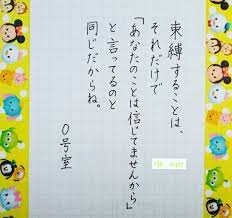 束縛することは、
それだけで
「あなたのことは信じてませんから」
と言ってるのと
同じだからね。
0号室